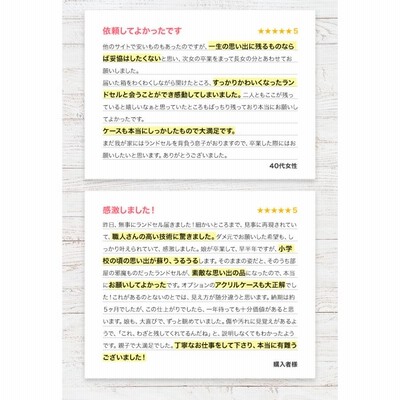 依頼してよかったです
★★★★★5
他のサイトで安いものもあったのですが、一生の思い出に残るものなら
ば妥協はしたくないと思い、次女の卒業をまって長女の分とあわせてお
願いしました。
届いた箱をわくわくしながら開けたところ、すっかりかわいくなったラン
ドセルと会うことができ感動してしまいました。二人ともここが残っ
ていると嬉しいなぁと思っていたところもばっちり残っており本当にお願いし
てよかったです。
ケースも本当にしっかしたもので大満足です。
まだ我が家にはランドセルを背負う息子がおりますので、卒業した際にはお
願いしたいと思います。ありがとうございました。
40代女性
感激しました！
★★★★★5
昨日、無事にランドセル届きました！細かいところまで、見事に再現されてい
て、職人さんの高い技術に驚きました。ダメ元でお願いした希望も、し
っかり叶えられていて、感激しました。娘が卒業して、早半年ですが、小学
校の頃の思い出が蘇り、うるうるします。そのままの姿だと、そのうち部
屋の邪魔ものだったランドセルが、素敵な思い出の品になったので、本当
にお願いしてよかったです。オプションのアクリルケースも大正解でし
た！これがあるのとないのとでは、見え方が随分違うと思います。納期は約
5ヶ月でしたが、この仕上がりでしたら、一年待っても十分価値があると思
います。娘も、大喜びで、ずっと眺めていました。傷や汚れに見覚えがあるよ
うで、「これ、わざと残してくれてるんだね」と、説明しなくてもわかったよう
です。親子で大満足でした。丁寧なお仕事をして下さり、本当に有難う
ございました！
購入者様